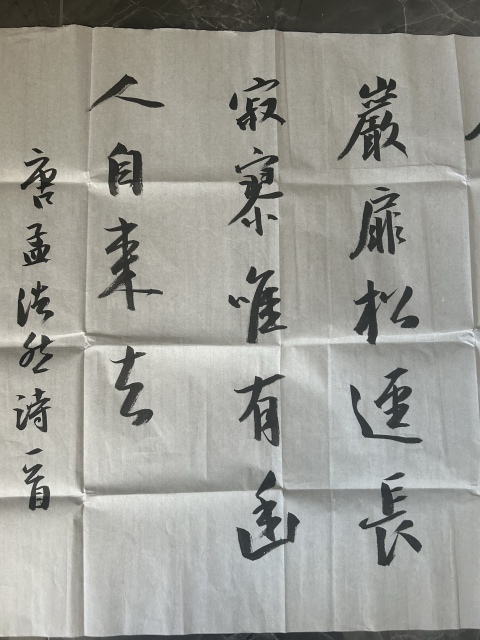 巖扉松逕長
寂寥唯有幽
人自来去
唐孟浩然詩一首